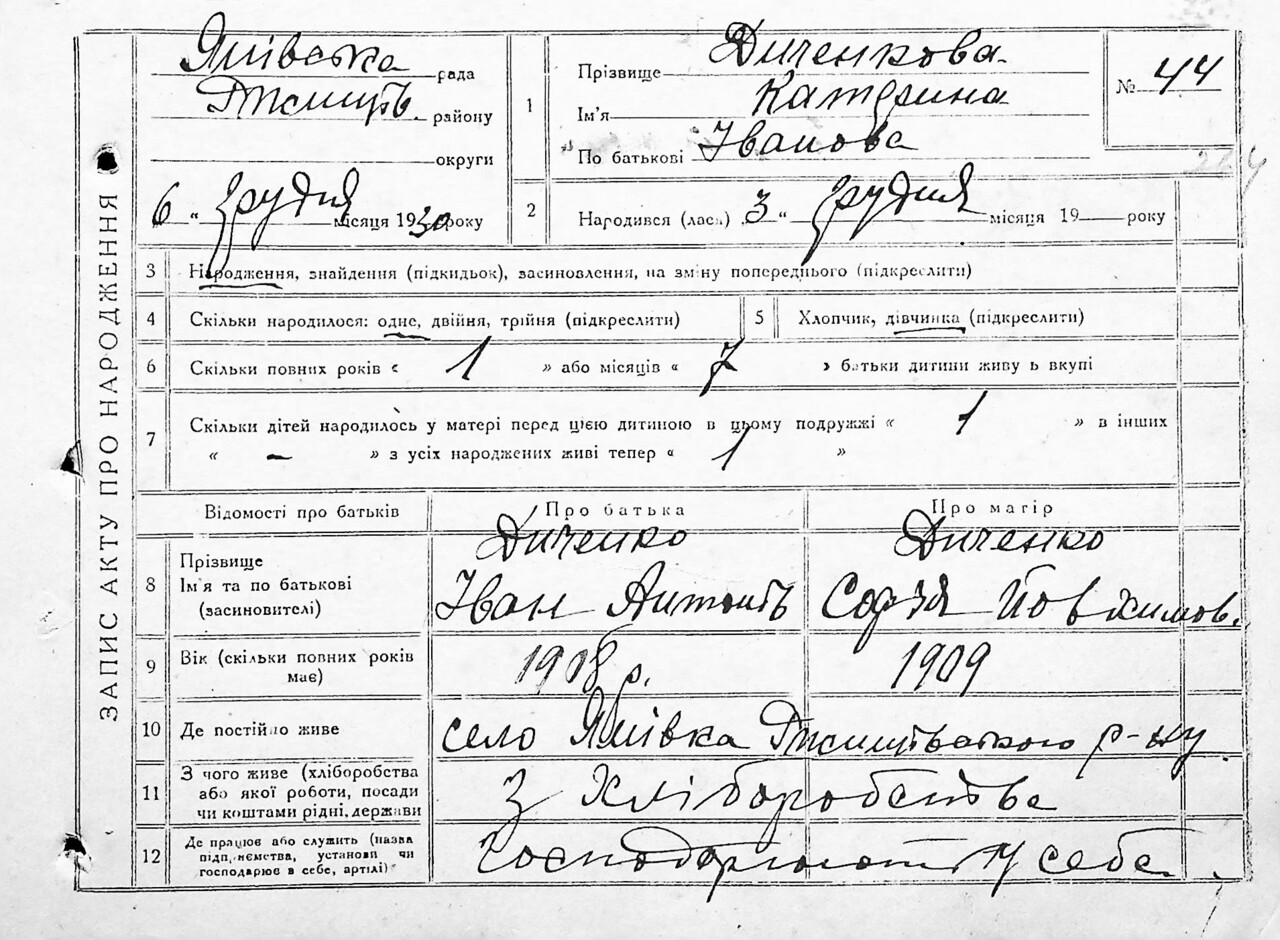 ЗАПИС АКТУ ПРО НАРОДЖЕННЯ
Ямівська рада
району
округи
6 " грудня місяця 1930 року
1 Прізвище Диченкова
Ім'я Катерина
По батькові Іванова
№ 44
2 Народився (лась) 3 " грудня місяця 19 року
3 Народження, знайдення (підкидьок), засиновлення, на зміну попереднього (підкреслити)
4 Скільки народилося: одне, двійня, трійня (підкреслити)
5 Хлопчик, дівчинка (підкреслити)
6 Скільки повних років « 1 » або місяців « 7 » батьки дитини живуть вкупі
7 Скільки дітей народилось у матері перед цією дитиною в цьому подружжі « 1 » в інших
« – » з усіх народжених живі тепер « 1 »
Відомості про батьків Про батька Про матір
8 Прізвище Диченко Диченко
Ім'я та по батькові Іван Антонів Софія Йовхимов.
(засиновителі)
9 Вік (скільки повних років 1908 р. 1909
має)
10 Де постійно живе село Ямівка р-ну
11 З чого живе (хліборобства
або якої роботи, посади з хліборобства
чи коштами рідні, держави
12 Де працює або служить (назва
підприємства, установи чи Господарюють у себе
господарює в себе, артілі)